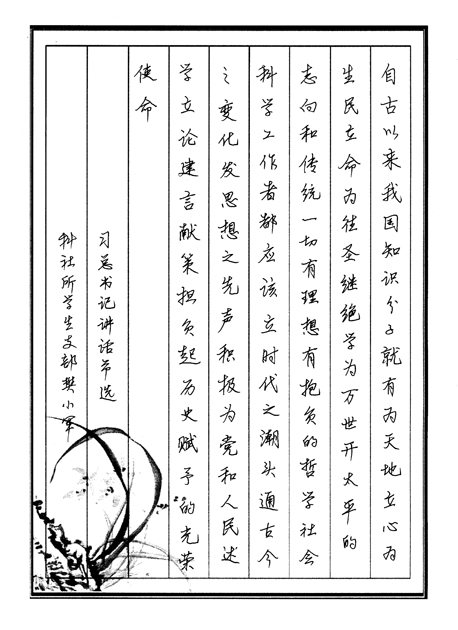 自古以来我国知识分子就有为天地立心为
生民立命为往圣继绝学为万世开太平的
志向和传统一切有理想有抱负的哲学社会
科学工作者都应该立时代之潮头通古今
之变化发思想之先声积极为党和人民述
学立论建言献策担负起历史赋予的光荣
使命
习总书记讲话节选
科社所学生支部樊小军